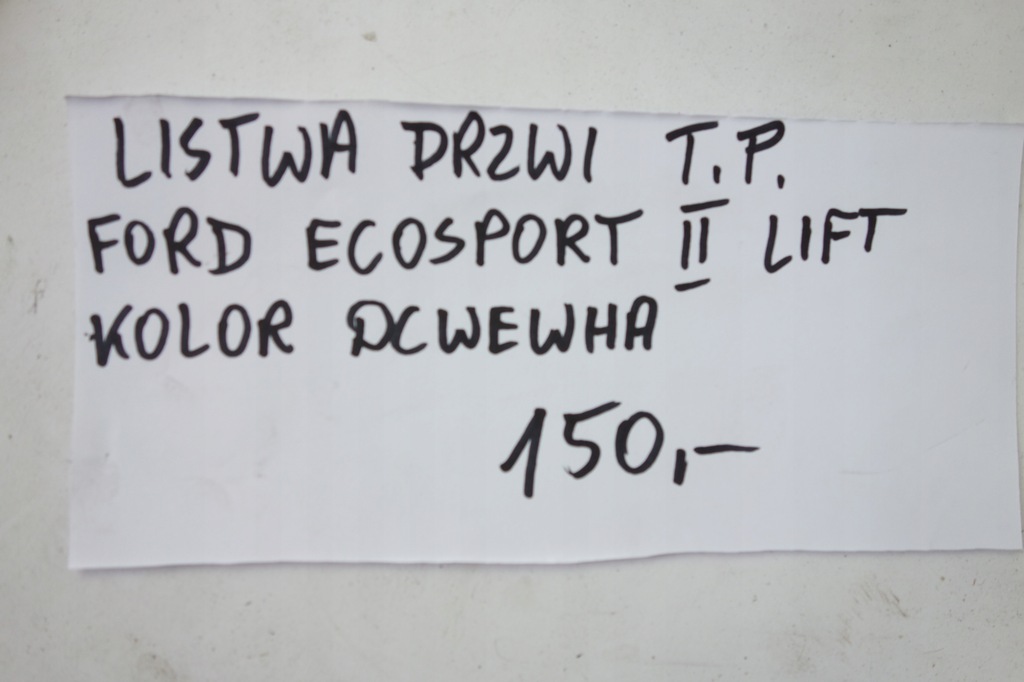 LISTWA DRZWI T.P.
FORD ECOSPORT II LIFT
KOLOR DCWEWHA
150,-